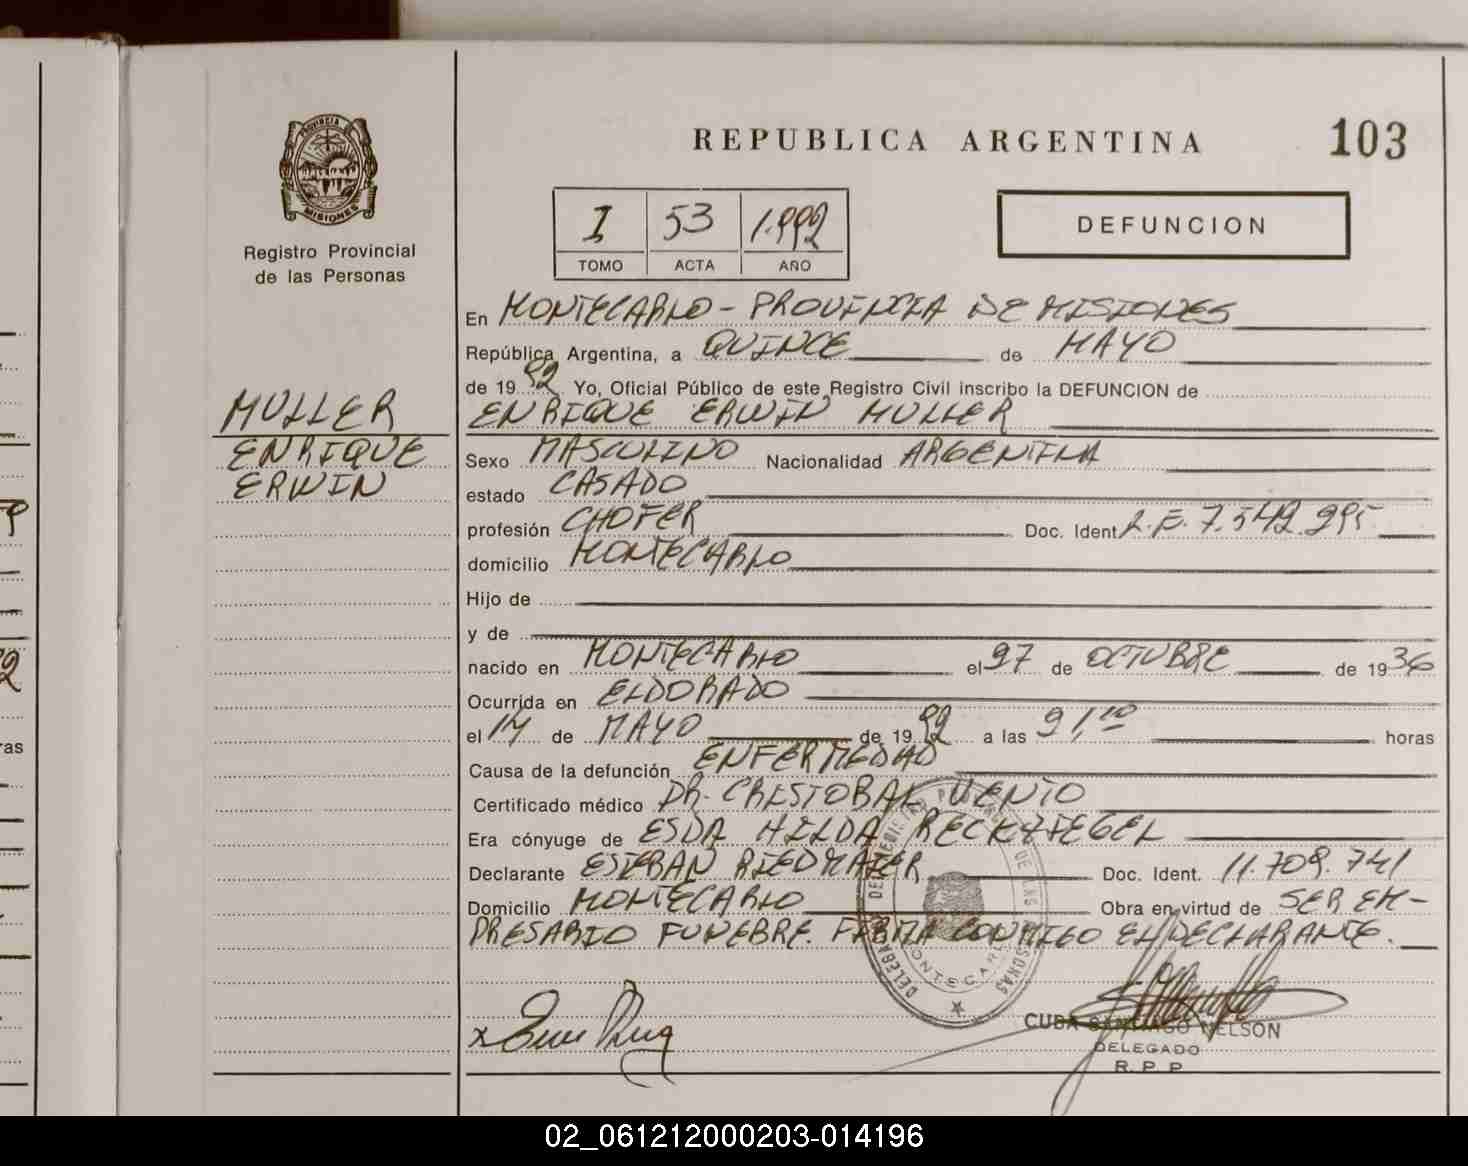 REPUBLICA ARGENTINA
103
PROVINCIA
MISIONES
Registro Provincial
de las Personas
I 53 1.992
TOMO ACTA AÑO
DEFUNCION
En MONTECARLO - PROVINCIA DE MISIONES
República Argentina, a QUINCE de MAYO
de 19 92 Yo, Oficial Público de este Registro Civil inscribo la DEFUNCION de
MULLER
ENRIQUE ERWIN MULLER
ENRIQUE
ERWIN
Sexo MASCULINO Nacionalidad ARGENTINA
estado CASADO
profesión CHOFER Doc. Ident. L.E. 7.542.295
domicilio MONTECARLO
Hijo de
y de
nacido en MONTECARLO el 27 de OCTUBRE de 1936
Ocurrida en ELDORADO
el 14 de MAYO de 19 92 a las 21,10 horas
Causa de la defunción ENFERMEDAD
Certificado médico DR. CRISTOBAL VENTO
Era cónyuge de ESDA HILDA RECKZIEGEL
Declarante ESTEBAN RIEDMAIER Doc. Ident. 11.709.741
Domicilio MONTECARLO Obra en virtud de SER EM-
PRESARIO FUNEBRE. FIRMA CONMIGO EL DECLARANTE.
MONTECARLO
CUBA SANTIAGO NELSON
DELEGADO
R. P. P
02_061212000203-014196